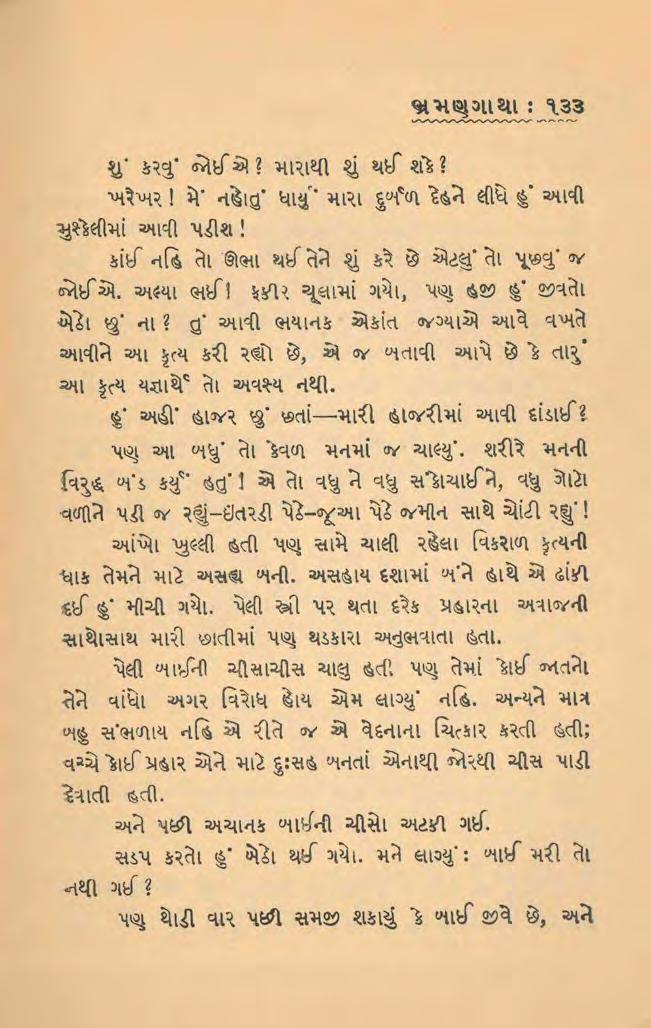 ભ્રમણગાથા : ૧૩૩
શું કરવું જોઈએ? મારાથી શું થઈ શકે?
ખરેખર! મેં નહોતું ધાર્યું મારા દુર્બળ દેહને લીધે હું આવી
મુશ્કેલીમાં આવી પડીશ!
કાંઈ નહિ તો ઊભા થઈ તેને શું કરે છે એટલું તો પૂછવું જ
જોઈએ. અલ્યા ભઈ! ફકીર ચૂલામાં ગયો, પણ હજી હું જીવતો
બેઠો છું ના? તું આવી ભયાનક એકાંત જગ્યાએ આવે વખતે
આવીને આ કૃત્ય કરી રહ્યો છે, એ જ બતાવી આપે છે કે તારું
આ કૃત્ય યજ્ઞાર્થે તો અવશ્ય નથી.
હું અહીં હાજર છું છતાં—મારી હાજરીમાં આવી દાંડાઈ?
પણ આ બધું તો કેવળ મનમાં જ ચાલ્યું. શરીરે મનની
વિરુદ્ધ બંડ કર્યું હતું! એ તો વધુ ને વધુ સંકોચાઈને, વધુ ગોટો
વળીને પડી જ રહ્યું–ઇતરડી પેઠે–જૂઆ પેઠે જમીન સાથે ચોંટી રહ્યું!
આંખો ખુલ્લી હતી પણ સામે ચાલી રહેલા વિકરાળ કૃત્યની
ધાક તેમને માટે અસહ્ય બની. અસહાય દશામાં બંને હાથે એ ઢાંકી
દઈ હું મીચી ગયો. પેલી સ્ત્રી પર થતા દરેક પ્રહારના અવાજની
સાથોસાથ મારી છાતીમાં પણ થડકારા અનુભવાતા હતા.
પેલી બાઈની ચીસાચીસ ચાલુ હતી પણ તેમાં કોઈ જાતનો
તેને વાંધો અગર વિરોધ હોય એમ લાગ્યું નહિ. અન્યને માત્ર
બહુ સંભળાય નહિ એ રીતે જ એ વેદનાના ચિત્કાર કરતી હતી;
વચ્ચે કોઈ પ્રહાર એને માટે દુઃસહ બનતાં એનાથી જોરથી ચીસ પાડી
દેવાતી હતી.
અને પછી અચાનક બાઈની ચીસો અટકી ગઈ.
સડપ કરતો હું બેઠો થઈ ગયો. મને લાગ્યું: બાઈ મરી તો
નથી ગઈ?
પણ થોડી વાર પછી સમજી શકાયું કે બાઈ જીવે છે, અને